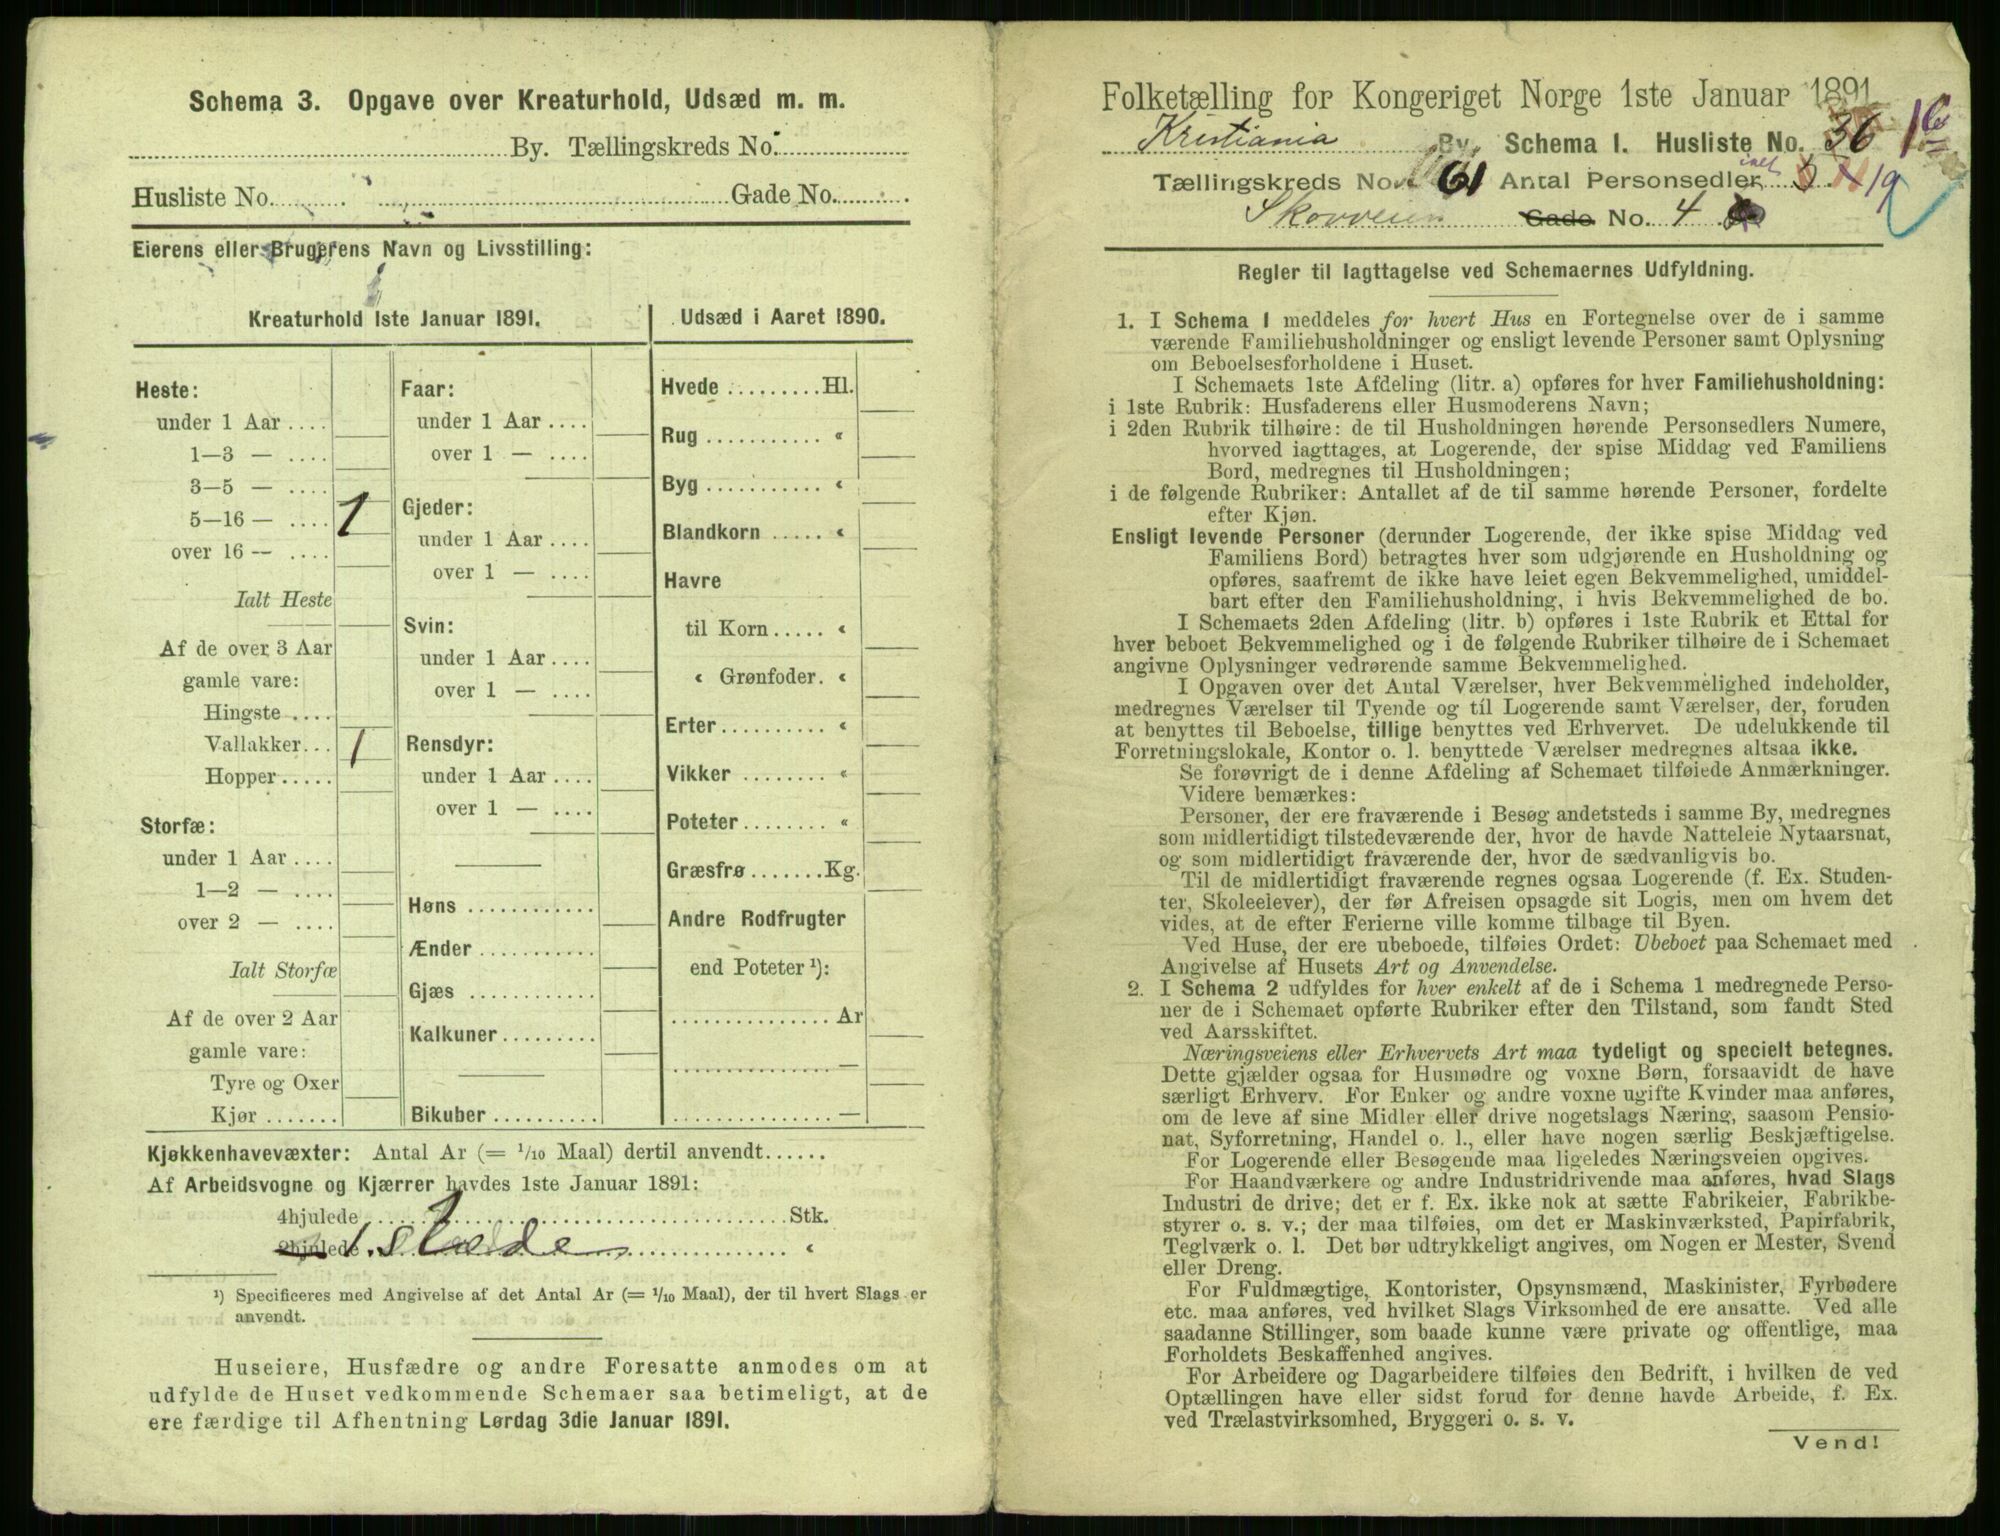 Schema 3. Opgave over Kreaturhold, Udsæd m. m.
By. Tællingskreds No.
Husliste No. Gade No.
Eierens eller Brugerens Navn og Livsstilling:
Kreaturhold 1ste Januar 1891.
Heste:
under 1 Aar ....
1—3 — ....
3—5 — ....
5—16 — .... 1
over 16 — ....
Ialt Heste
Af de over 3 Aar
gamle vare:
Hingste ....
Vallakker... 1
Hopper.....
Storfæ:
under 1 Aar ....
1—2 — ....
over 2 — ....
Ialt Storfæ
Af de over 2 Aar
gamle vare:
Tyre og Oxer
Kjør .......
Faar:
under 1 Aar ....
over 1 — ....
Gjeder:
under 1 Aar ....
over 1 — ....
Svin:
under 1 Aar ....
over 1 — ....
Rensdyr:
under 1 Aar ....
over 1 — ....
Høns ............
Ænder ...........
Gjæs ............
Kalkuner.........
Bikuber ..........
Udsæd i Aaret 1890.
Hvede .........Hl.
Rug ........... «
Byg ........... «
Blandkorn ..... «
Havre
til Korn..... «
« Grønfoder. «
Erter.......... «
Vikker ........ «
Poteter........ «
Græsfrø .......Kg.
Andre Rodfrugter
end Poteter ¹):
............... Ar
............... —
............... —
Kjøkkenhavevæxter: Antal Ar (= 1/10 Maal) dertil anvendt......
Af Arbeidsvogne og Kjærrer havdes 1ste Januar 1891:
4hjulede .... 1 .... Stk.
2hjulede 1. Slæde .... «
¹) Specificeres med Angivelse af det Antal Ar (= 1/10 Maal), der til hvert Slags er
anvendt.
Huseiere, Husfædre og andre Foresatte anmodes om at
udfylde de Huset vedkommende Schemaer saa betimeligt, at de
ere færdige til Afhentning Lørdag 3die Januar 1891.
Folketælling for Kongeriget Norge 1ste Januar 1891.
Kristiania By. Schema 1. Husliste No. 36 16
Tællingskreds No. 61 Antal Personsedler 19
Skovveien Gade No. 4
Regler til Iagttagelse ved Schemaernes Udfyldning.
1. I Schema 1 meddeles for hvert Hus en Fortegnelse over de i samme
værende Familiehusholdninger og ensligt levende Personer samt Oplysning
om Beboelsesforholdene i Huset.
I Schemaets 1ste Afdeling (litr. a) opføres for hver Familiehusholdning:
i 1ste Rubrik: Husfaderens eller Husmoderens Navn;
i 2den Rubrik tilhøire: de til Husholdningen hørende Personsedlers Numere,
hvorved iagttages, at Logerende, der spise Middag ved Familiens
Bord, medregnes til Husholdningen;
i de følgende Rubriker: Antallet af de til samme hørende Personer, fordelte
efter Kjøn.
Ensligt levende Personer (derunder Logerende, der ikke spise Middag ved
Familiens Bord) betragtes hver som udgjørende en Husholdning og
opføres, saafremt de ikke have leiet egen Bekvemmelighed, umiddel-
bart efter den Familiehusholdning, i hvis Bekvemmelighed de bo.
I Schemaets 2den Afdeling (litr. b) opføres i 1ste Rubrik et Ettal for
hver beboet Bekvemmelighed og i de følgende Rubriker tilhøire de i Schemaet
angivne Oplysninger vedrørende samme Bekvemmelighed.
I Opgaven over det Antal Værelser, hver Bekvemmelighed indeholder,
medregnes Værelser til Tyende og til Logerende samt Værelser, der, foruden
at benyttes til Beboelse, tillige benyttes ved Erhvervet. De udelukkende til
Forretningslokale, Kontor o. l. benyttede Værelser medregnes altsaa ikke.
Se forøvrigt de i denne Afdeling af Schemaet tilføiede Anmærkninger.
Videre bemærkes:
Personer, der ere fraværende i Besøg andetsteds i samme By, medregnes
som midlertidigt tilstedeværende der, hvor de havde Natteleie Nytaarsnat,
og som midlertidigt fraværende der, hvor de sædvanligvis bo.
Til de midlertidigt fraværende regnes ogsaa Logerende (f. Ex. Studen-
ter, Skoleelever), der før Afreisen opsagde sit Logis, men om hvem det
vides, at de efter Ferierne ville komme tilbage til Byen.
Ved Huse, der ere ubeboede, tilføies Ordet: Ubeboet paa Schemaet med
Angivelse af Husets Art og Anvendelse.
2. I Schema 2 udfyldes for hver enkelt af de i Schema 1 medregnede Perso-
ner de i Schemaet opførte Rubriker efter den Tilstand, som fandt Sted
ved Aarsskiftet.
Næringsveiens eller Erhvervets Art maa tydeligt og specielt betegnes.
Dette gjælder ogsaa for Husmødre og voxne Børn, forsaavidt de have
særligt Erhverv. For Enker og andre voxne ugifte Kvinder maa anføres,
om de leve af sine Midler eller drive nogetslags Næring, saasom Pensio-
nat, Syforretning, Handel o. l., eller have nogen særlig Beskjæftigelse.
For Logerende eller Besøgende maa ligeledes Næringsveien opgives.
For Haandværkere og andre Industridrivende maa anføres, hvad Slags
Industri de drive; det er f. Ex. ikke nok at sætte Fabrikeier, Fabrikbe-
styrer o. s. v.; der maa tilføies, om det er Maskinværksted, Papirfabrik,
Teglværk o. l. Det bør udtrykkeligt angives, om Nogen er Mester, Svend
eller Dreng.
For Fuldmægtige, Kontorister, Opsynsmænd, Maskinister, Fyrbødere
etc. maa anføres, ved hvilket Slags Virksomhed de ere ansatte. Ved alle
saadanne Stillinger, som baade kunne være private og offentlige, maa
Forholdets Beskaffenhed angives.
For Arbeidere og Dagarbeidere tilføies den Bedrift, i hvilken de ved
Optællingen have eller sidst forud for denne havde Arbeide, f. Ex.
ved Trælastvirksomhed, Bryggeri o. s. v.
Vend!